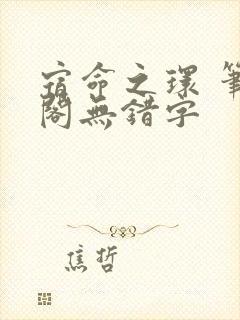 宿命之環 筆
閣無錯字
焦哲